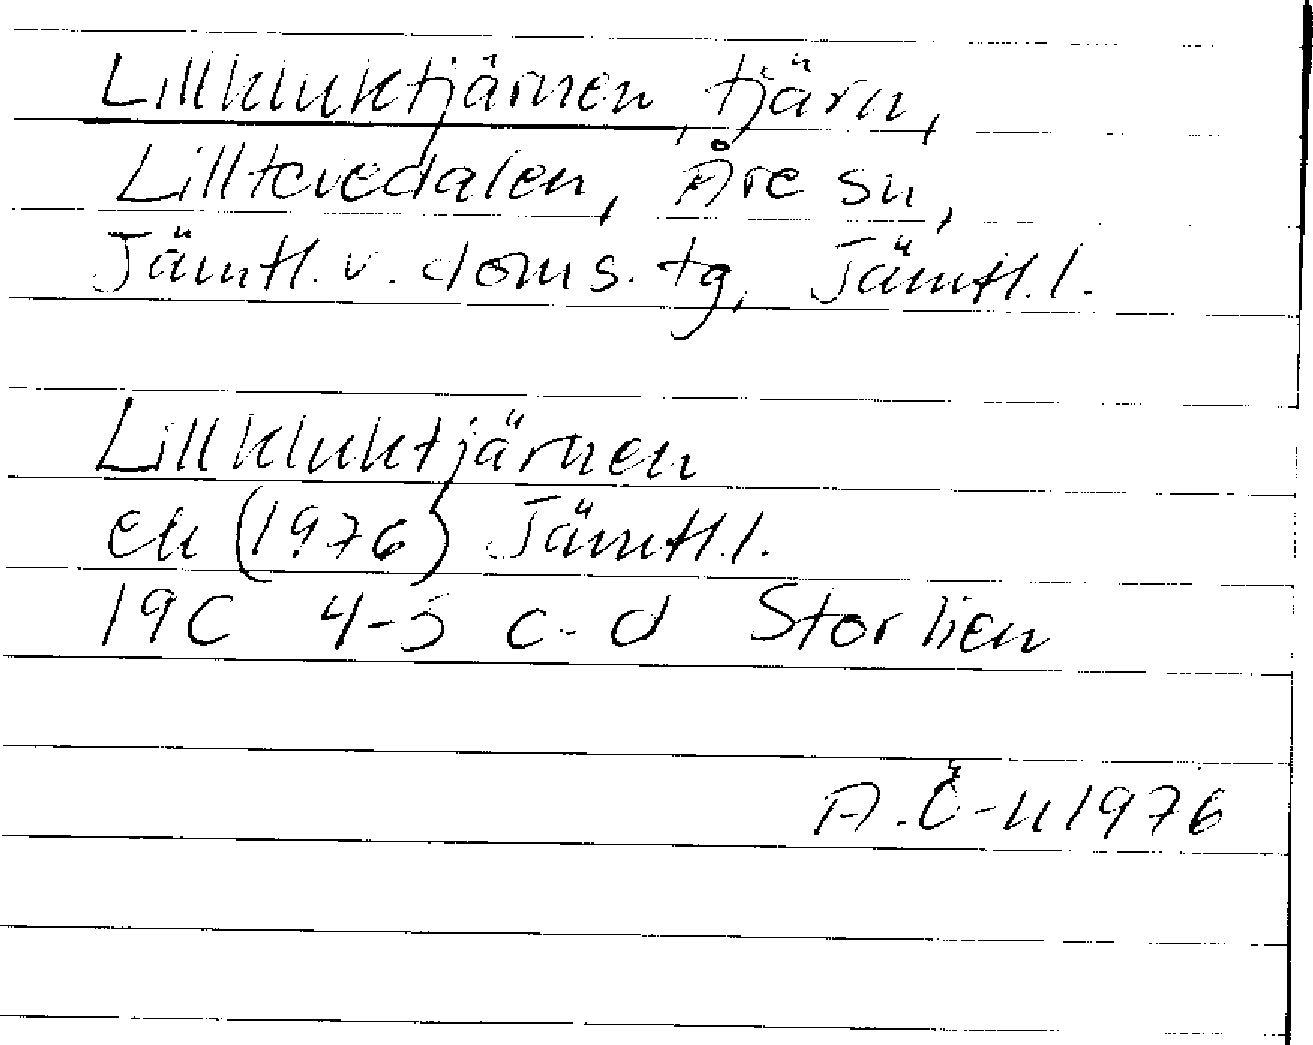 Lillkluktjärnen, tjärn,
Lilltevedalen, Åre sn,
Jämtl. v. doms. tg, Jämtl. l.
Lillkluktjärnen
ek (1976) Jämtl. l.
19C 4-5 c-d Storlien
A.Ö-n 1976